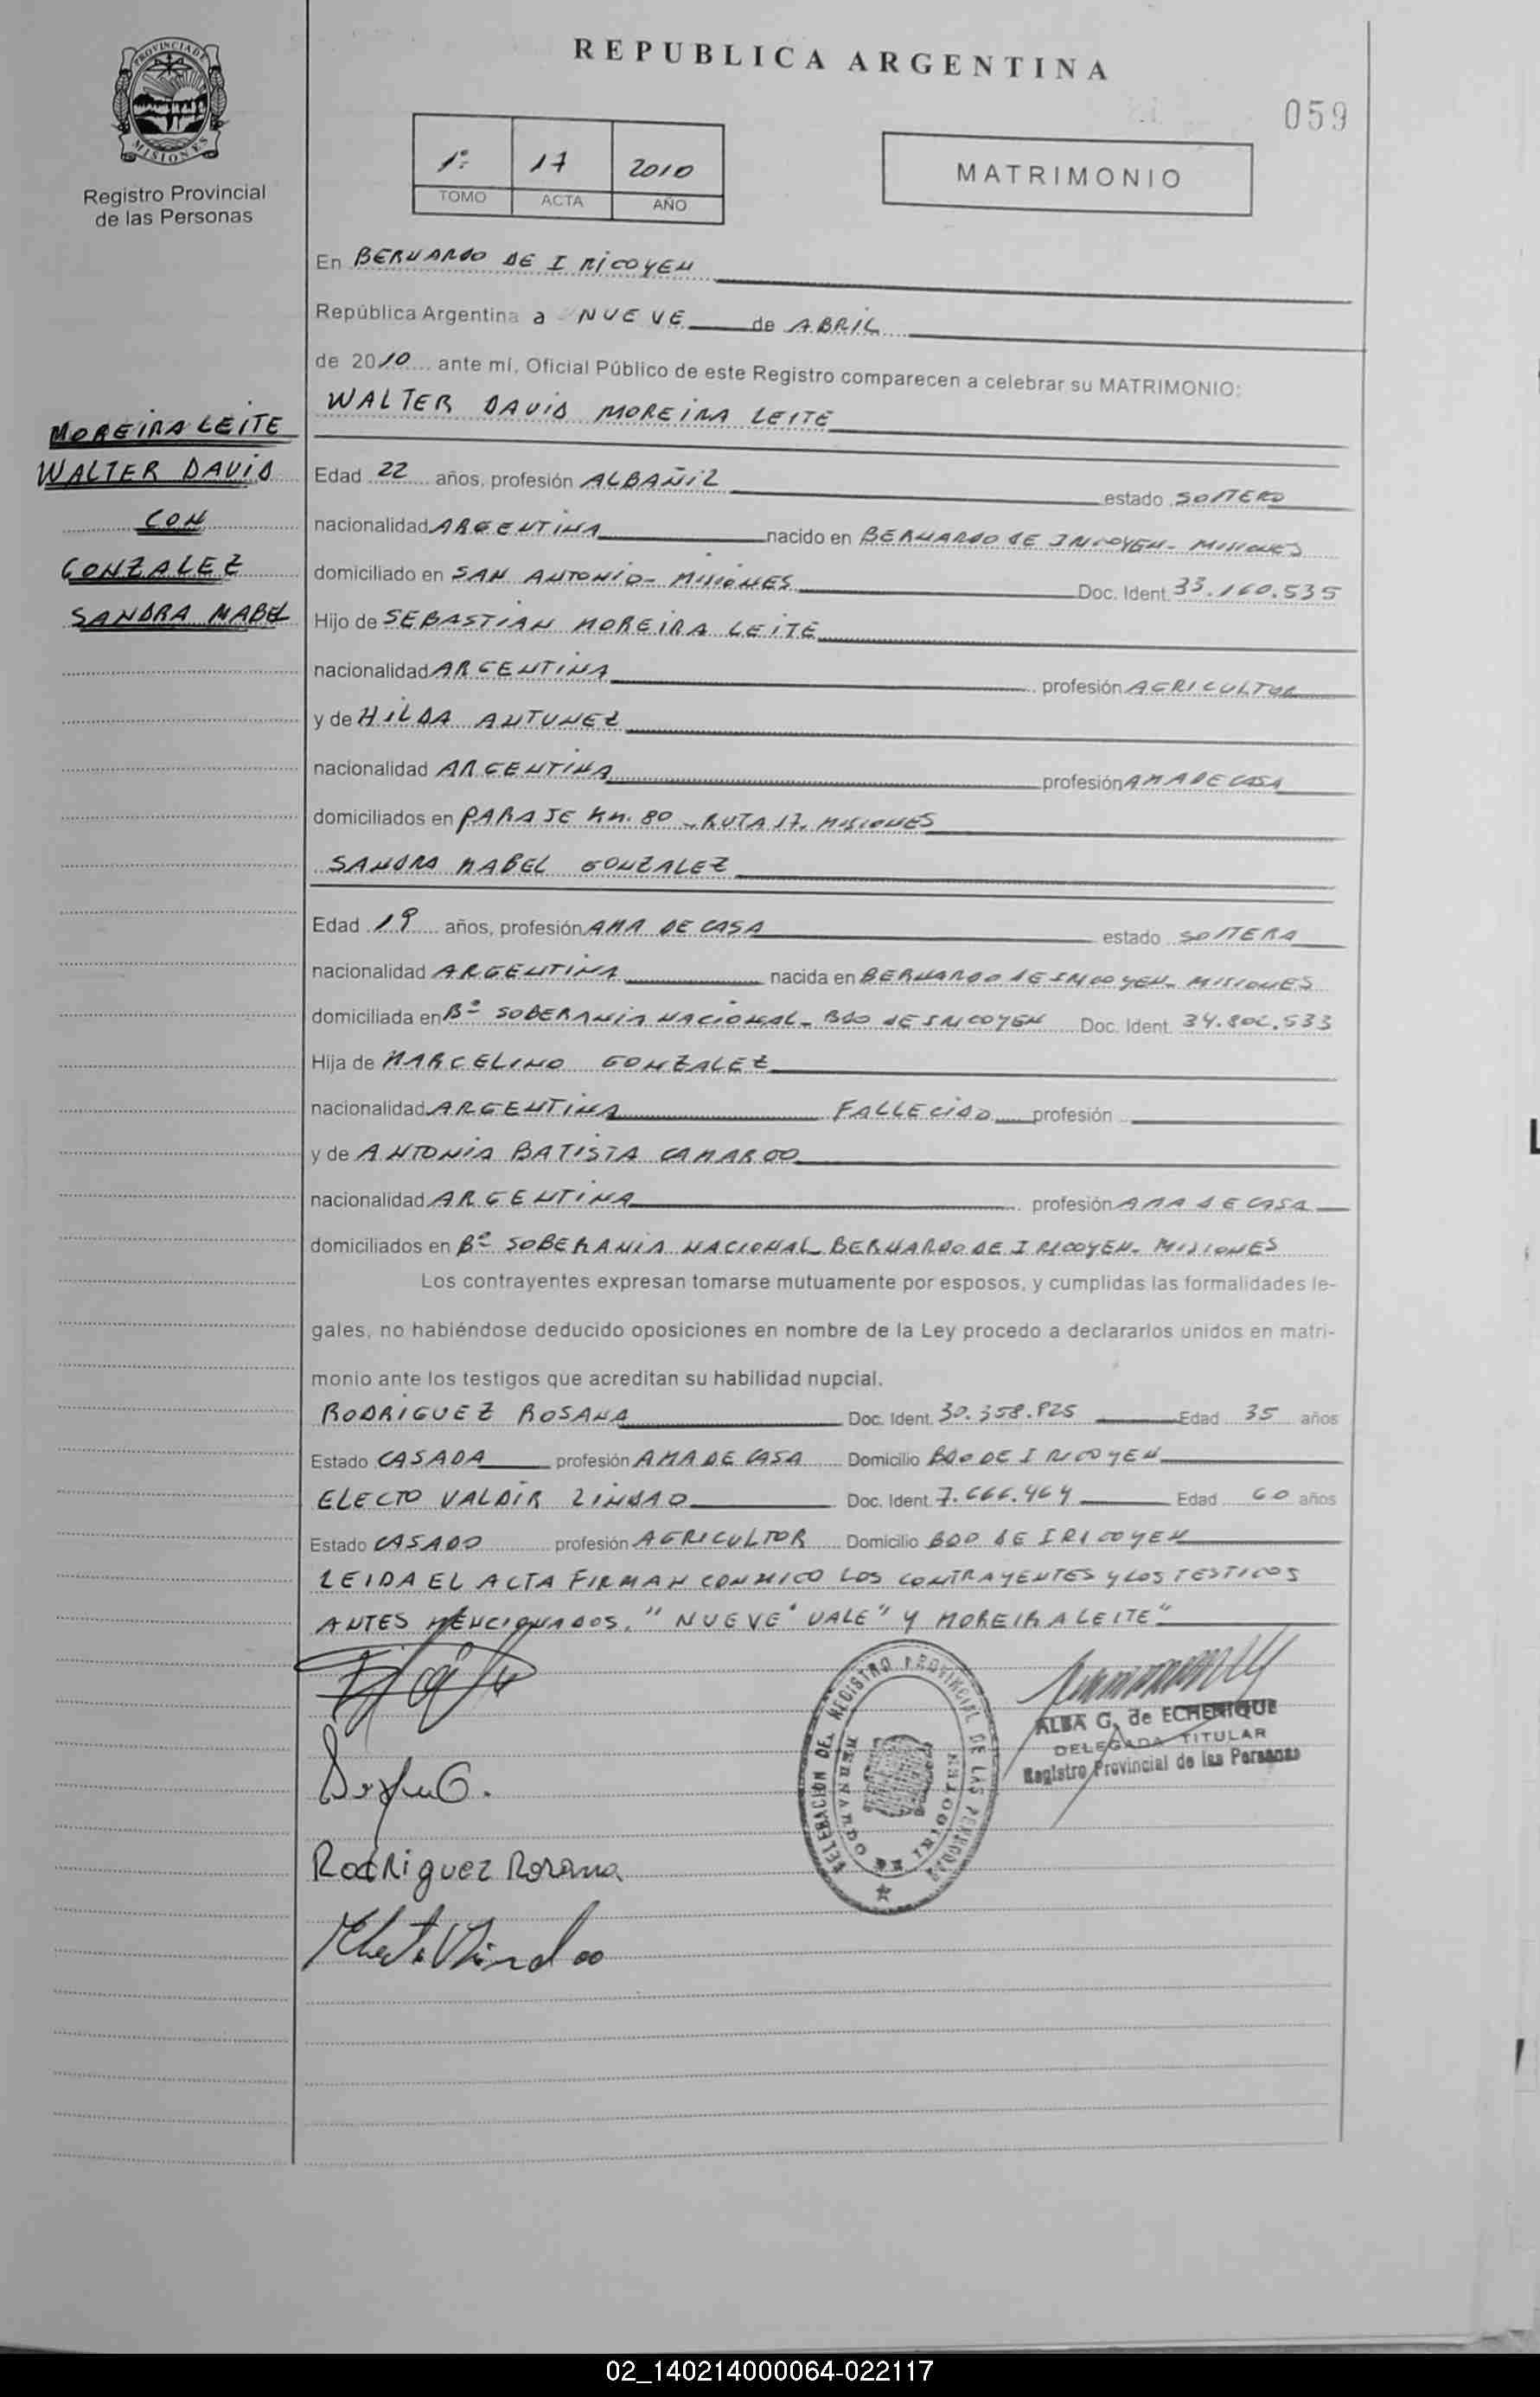 REPUBLICA ARGENTINA
059
PROVINCIA DE MISIONES
Registro Provincial
de las Personas
1º 17 2010
TOMO ACTA AÑO
MATRIMONIO
En BERNARDO DE IRIGOYEN
República Argentina a NUEVE de ABRIL
de 2010 ante mí, Oficial Público de este Registro comparecen a celebrar su MATRIMONIO:
WALTER DAVID MOREIRA LEITE
MOREIRA LEITE
WALTER DAVID
CON
GONZALEZ
SANDRA MABEL
Edad 22 años, profesión ALBAÑIL estado SOLTERO
nacionalidad ARGENTINA nacido en BERNARDO DE IRIGOYEN - MISIONES
domiciliado en SAN ANTONIO - MISIONES Doc. Ident. 33.160.535
Hijo de SEBASTIAN MOREIRA LEITE
nacionalidad ARGENTINA profesión AGRICULTOR
y de HILDA ANTUNEZ
nacionalidad ARGENTINA profesión AMA DE CASA
domiciliados en PARAJE KM. 80 - RUTA 17. MISIONES
SANDRA MABEL GONZALEZ
Edad 19 años, profesión AMA DE CASA estado SOLTERA
nacionalidad ARGENTINA nacida en BERNARDO DE IRIGOYEN - MISIONES
domiciliada en Bº SOBERANIA NACIONAL - BDO DE IRIGOYEN Doc. Ident.
Hija de MARCELINO GONZALEZ
nacionalidad ARGENTINA FALLECIDO profesión
y de ANTONIA BATISTA CAMARGO
nacionalidad ARGENTINA profesión AMA DE CASA
domiciliados en Bº SOBERANIA NACIONAL BERNARDO DE IRIGOYEN - MISIONES
Los contrayentes expresan tomarse mutuamente por esposos, y cumplidas las formalidades le-
gales, no habiéndose deducido oposiciones en nombre de la Ley procedo a declararlos unidos en matri-
monio ante los testigos que acreditan su habilidad nupcial.
RODRIGUEZ ROSANA Doc. Ident. Edad 35 años
Estado CASADA profesión AMA DE CASA Domicilio BDO DE IRIGOYEN
ELECTO VALDIR ZINDAO Doc. Ident. 7.666.464 Edad 60 años
Estado CASADO profesión AGRICULTOR Domicilio BDO DE IRIGOYEN
LEIDA EL ACTA FIRMAN CONMIGO LOS CONTRAYENTES Y LOS TESTIGOS
ANTES MENCIONADOS. "NUEVE" VALE" Y MOREIRA LEITE"
DELEGACION DEL REGISTRO PROVINCIAL DE LAS PERSONAS
BERNARDO DE IRIGOYEN
ALBA G. de ECHENIQUE
DELEGADA TITULAR
Registro Provincial de las Personas
Rodriguez Rosana
02_140214000064-022117